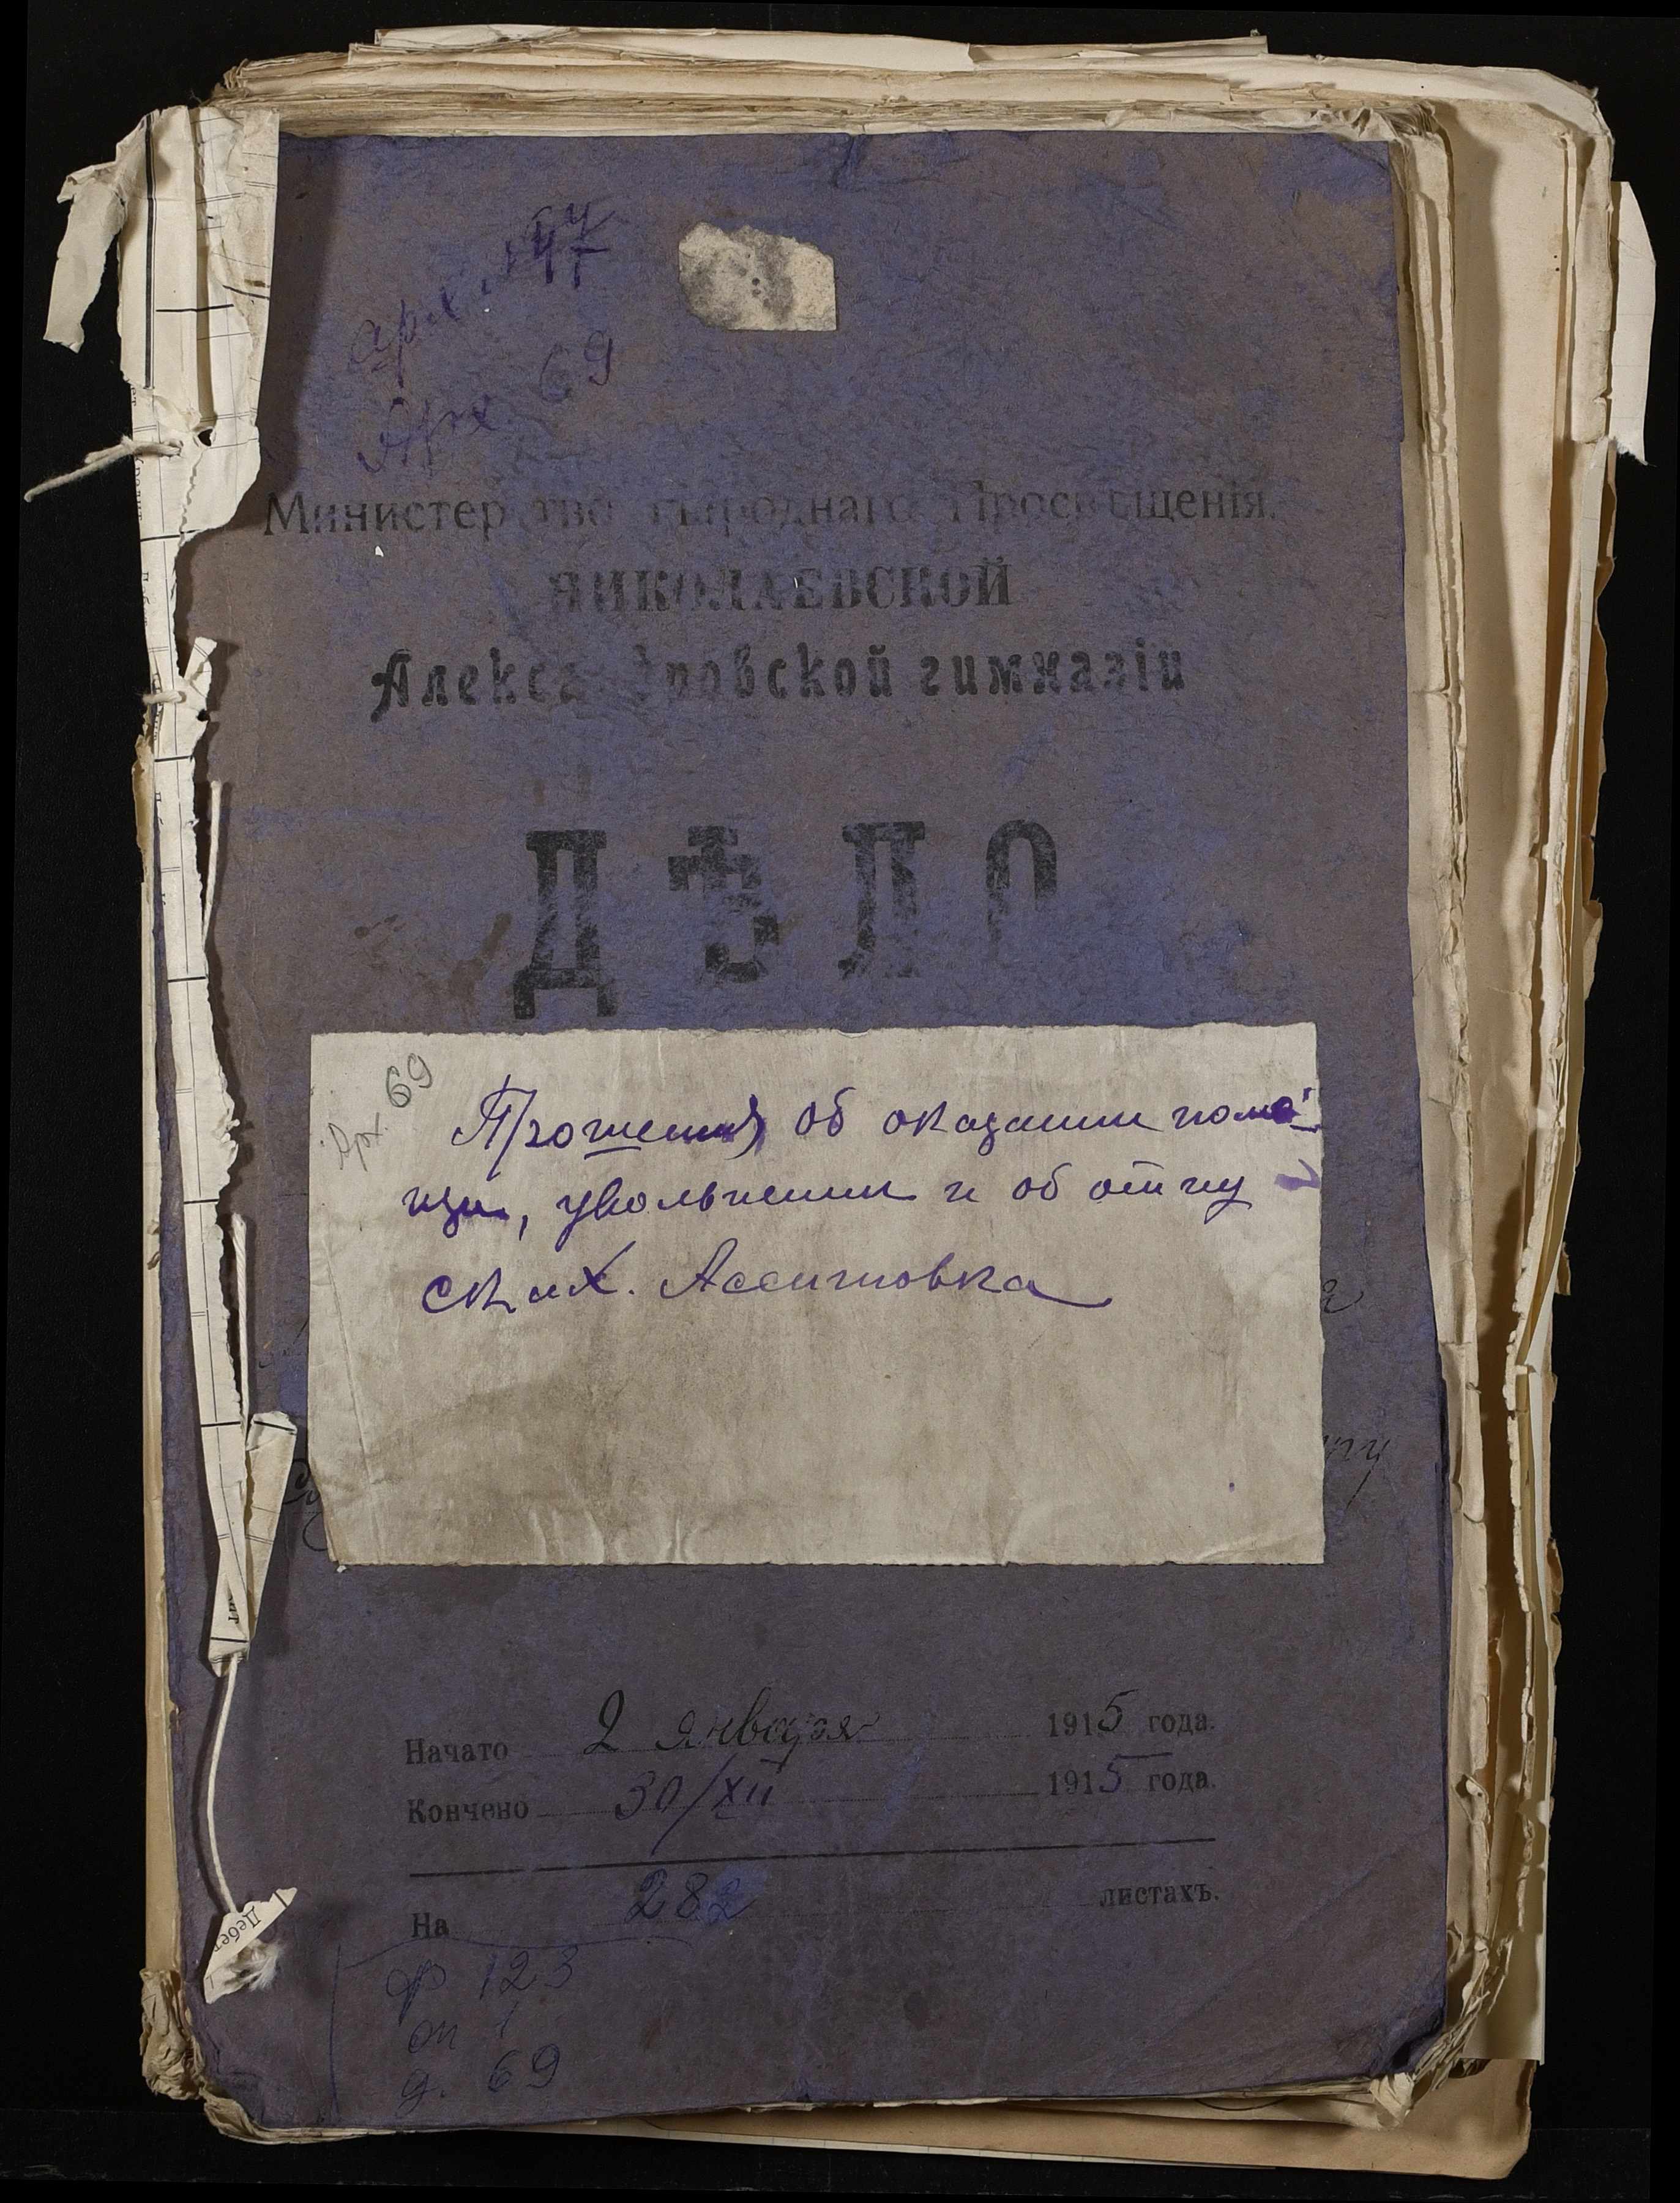 арх. 147
Арх. 69
Министерство Народнаго Просвѣщенія.
НИКОЛАЕВСКОЙ
Александровской гимназіи
ДѢЛО
Арх. 69
Прошения об оказании помо-
щи, увольнении и об отпу-
сках. Ассигновка
Начато 2 января 1915 года.
Кончено 30/XII 1915 года.
На 282 листахъ.
ф 123
оп 1
д. 69
Дебет